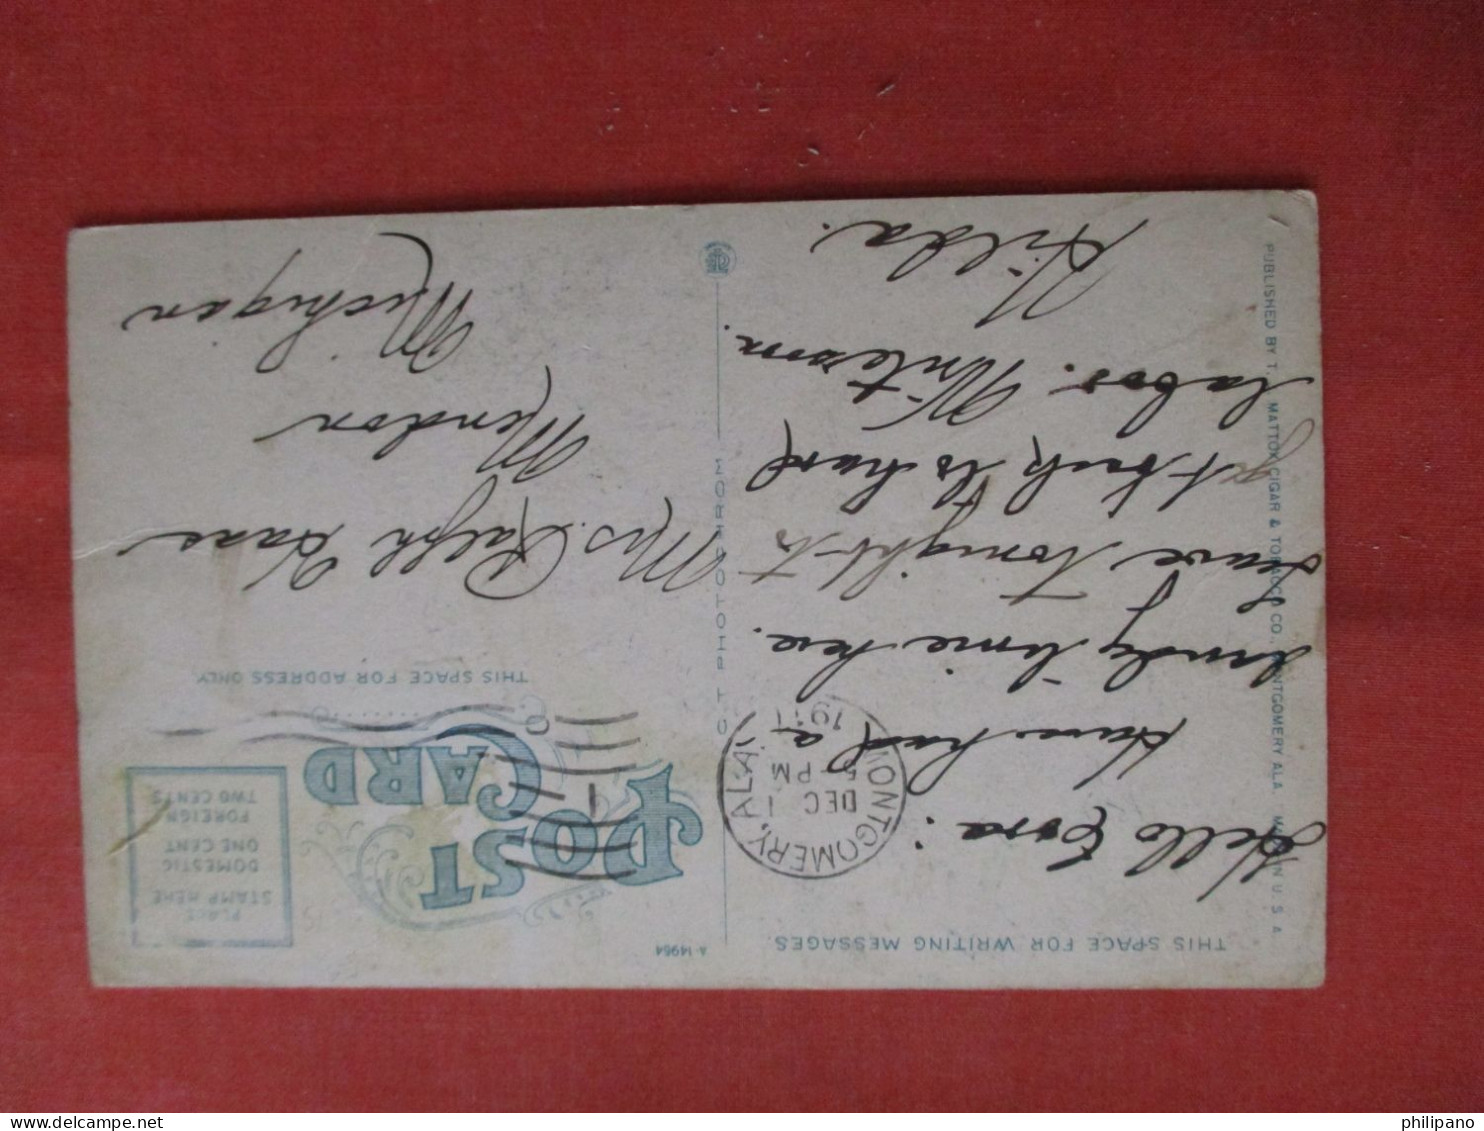 THIS SPACE FOR WRITING MESSAGES.
A-14964
POST
CARD
PLACE
STAMP HERE
DOMESTIC
ONE CENT
FOREIGN
TWO CENTS
MONTGOMERY, ALA.
DEC 1
5-PM
1911
THIS SPACE FOR ADDRESS ONLY
Hello Cora:
Have had a
dandy time here.
Leave tonight to
get back to hard
labor. Winterom.
Hilda.
Mrs. Ralph Haas
Mendon
Michigan
C. T. PHOTOCHROM
PUBLISHED BY T. MATTOX CIGAR & TOBACCO CO., MONTGOMERY ALA. MADE IN U S A.
philipano